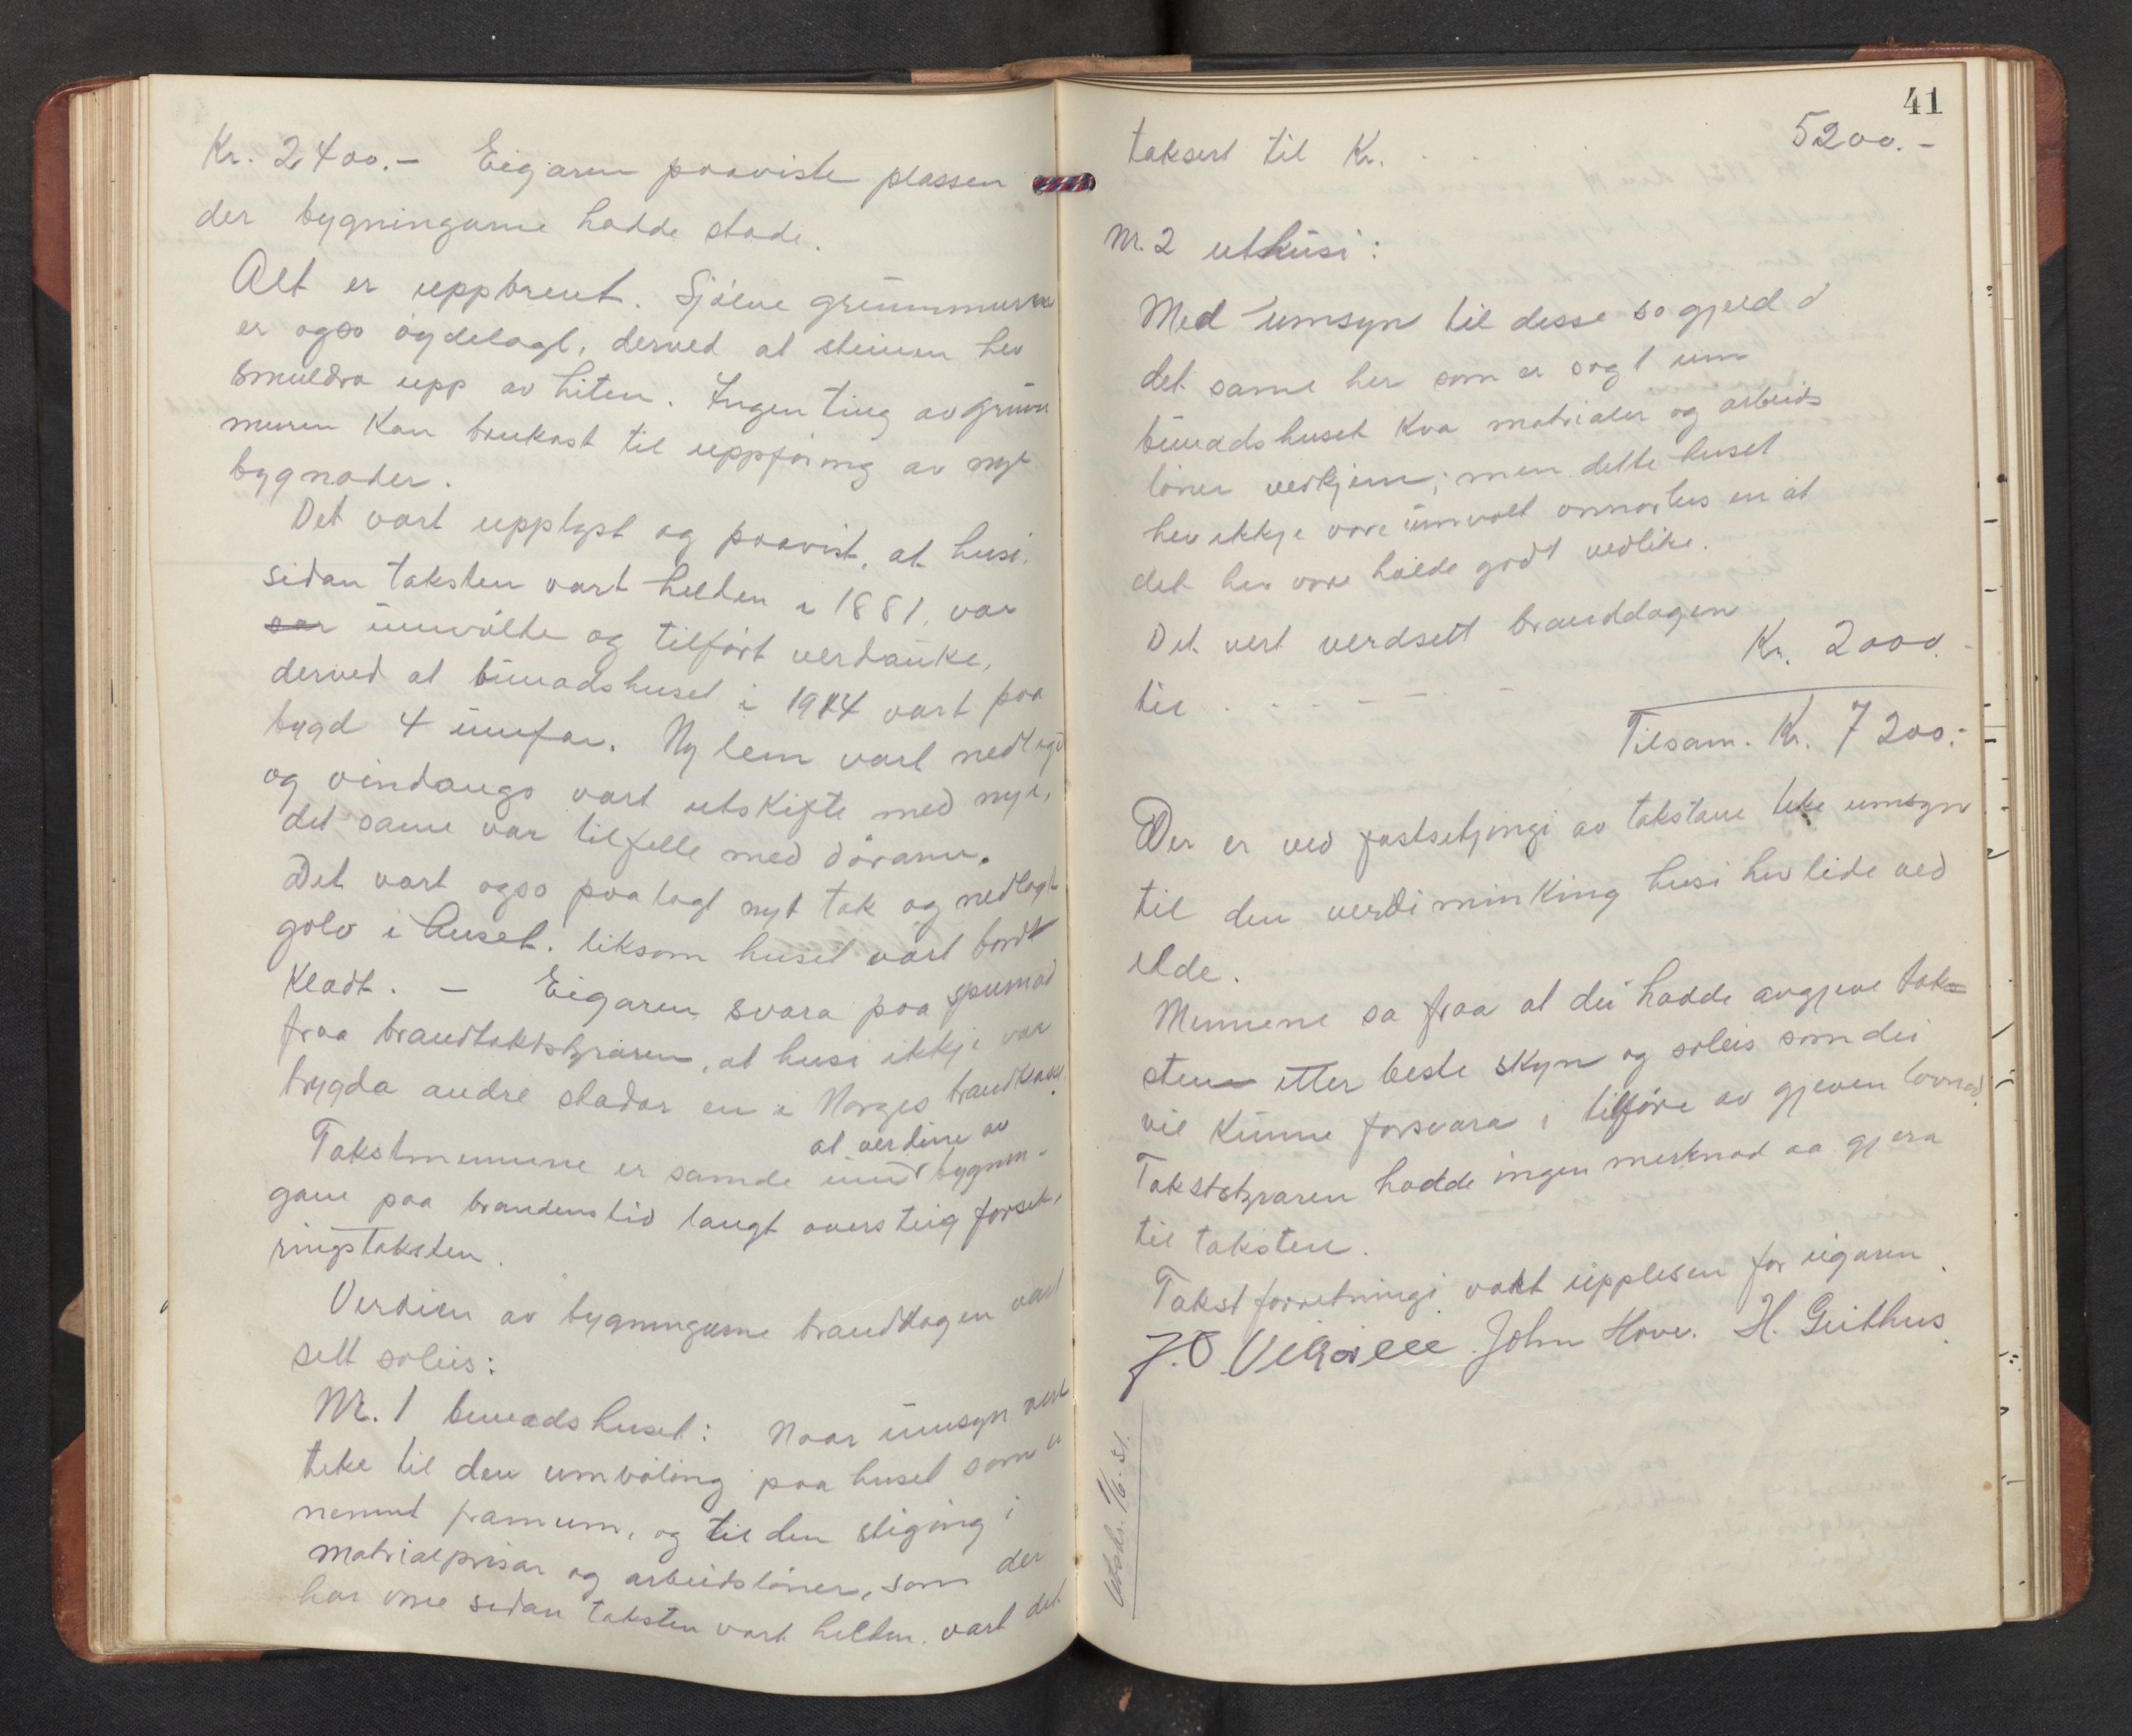 Kr. 2400.- Eigaren paaviste plassen
der bygningarne hadde stade.
Alt er uppbrent. Sjølve grunnmurne
er ogso øydelagt, derved at steinen hev
smuldra upp av hiten. Ingen ting av grunn
muren kan brukast til uppføring av nye
bygnader.
Det vart upplyst og paavist, at husi.
sidan taksten vart helden i 1881, var
umvølte og tilført verdauke,
derved at bunadshuset i 1914 vart paa
bygd 4 umfar. Ny lem vart nedlagd
og vindaugo vart utskifte med nye,
det same var tilfelle med dørarne.
Det vart ogso paalagt nyt tak og nedlagt
golv i huset. liksom huset vart bord
kledt. - Eigaren svara paa spurnad
fraa brandtakststyraren, at husi ikkje var
trygda andre stadar en i Norges brandkasse.
at verdine av
Takstmennene er samde um bygnin-
gane paa brandens tid langt oversteig forsik-
ringstaksten.
Verdien av bygningarne branddagen vart
sett soleis:
Nr. 1 bunadshuset: Naar umsyn vert
teke til den umvøling paa huset som er
nemnt framum, og til den stiging i
matrialprisar og arbeidsløner, som der
har vore sidan taksten vart helden. vart det
41
taksert til Kr. . . . . 5200.-
Nr. 2 uthusi:
Med umsyn til desse so gjeld d
det same her som er sagt um
bunadshuset kva matrialer og arbeids
løner vedkjem; men dette huset
hev ikkje vore umvølt onnorleis en at
det hev vore halde godt vedlike.
Det vert verdsett branddagen
til . . . . - . - Kr. 2000.-
Tilsam. Kr. 7200.-
Der er ved fastsetjingi av takstane teke umsyn
til den verdiminking husi hev lide ved
elde.
Mennene sa fraa at dei hadde avgjeve tak=
sten etter beste skyn og soleis som dei
vil kunne forsvara i tilføre av gjeven lovnad.
Takststyraren hadde ingen merknad aa gjera
til taksten.
Takstforretningi vart upplesen for eigaren.
John Hove. H. Geithus.
Utskr. 1/6-31.